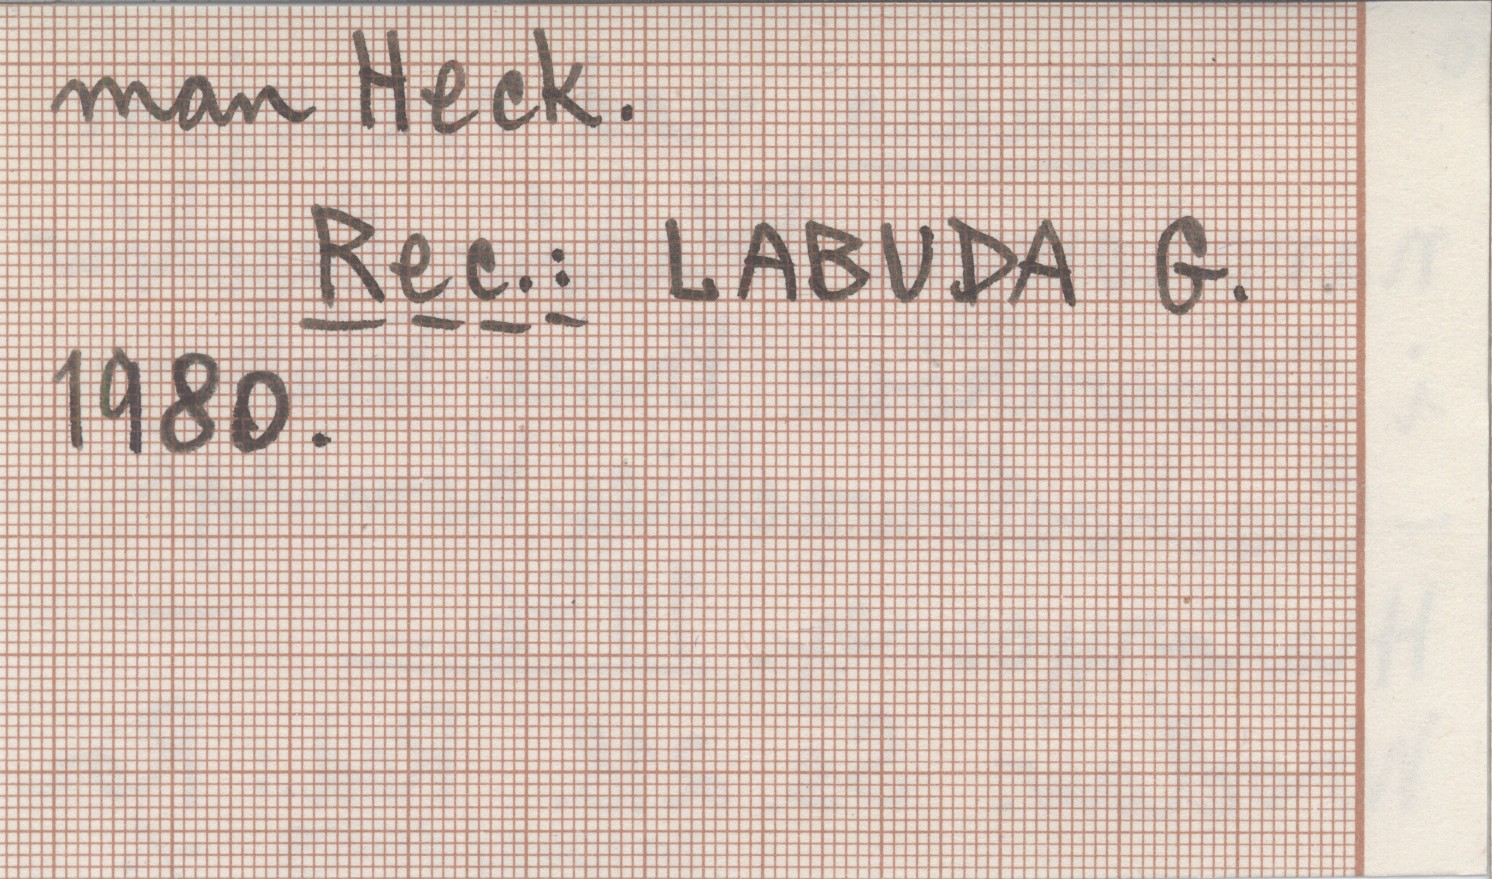 man Heck.
Rec.: LABUDA G.
1980.